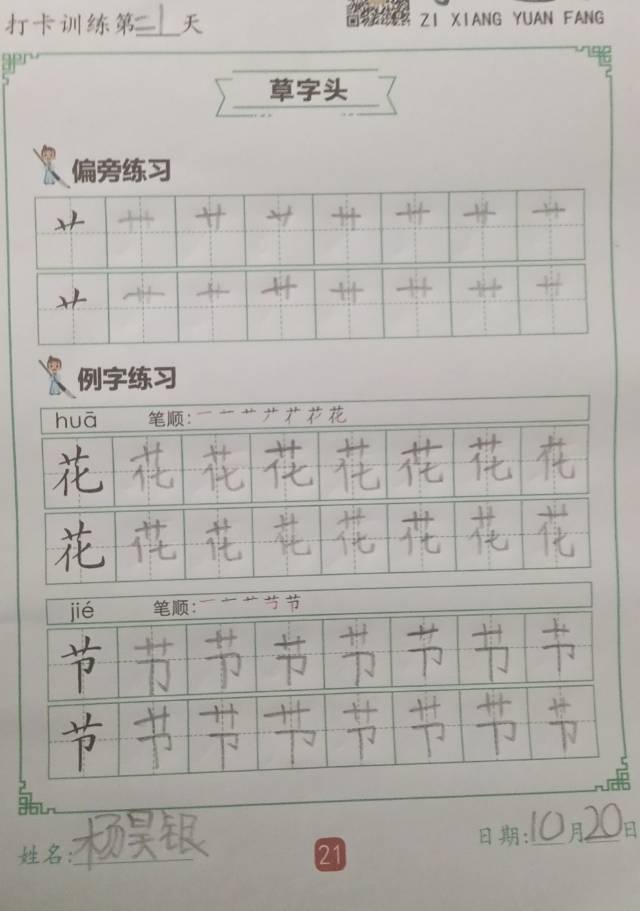 打卡训练第二1天
ZI XIANG YUAN FANG
草字头
偏旁练习
艹 艹 艹 艹 艹 艹 艹 艹
艹 艹 艹 艹 艹 艹 艹 艹
例字练习
huā 笔顺:
花 花 花 花 花 花 花 花
花 花 花 花 花 花 花 花
jié 笔顺:
节 节 节 节 节 节 节 节
节 节 节 节 节 节 节 节
姓名:杨昊银
21
日期:10月20日